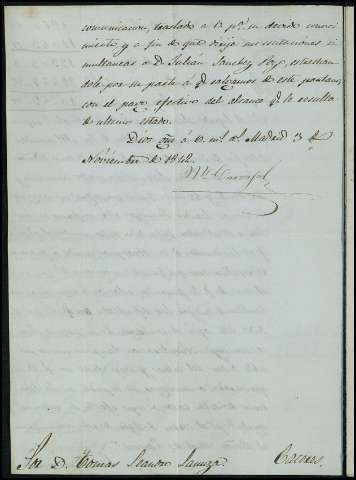 comunicacion, traslado a V. pª. su devido conoci
miento y a fin de que dirija sus reclamaciones si
multaneas a D. Julian Sanchez Hoyo, estrechan
dole por su parte á q. salgamos de este pantano,
con el pago efectivo del alcance q. le resulta
de ultimo estado.
Dios gue á V. ms. as. Madrid 3 de
Noviembre de 1842.
Sor. D. Tomas Leandro Lanuza. Caceres.